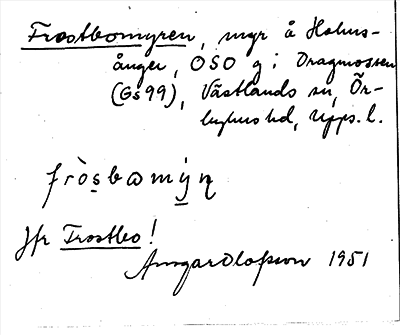 Frostbomyren, myr å Hohus-
ånger, OSO g i Dragmossen
(Gs 99), Västlands sn, Ör-
byhus hd, Upps. l.
fròsbωmy̱n
Jfr Frostbo!
Ansgar Olofsson 1951